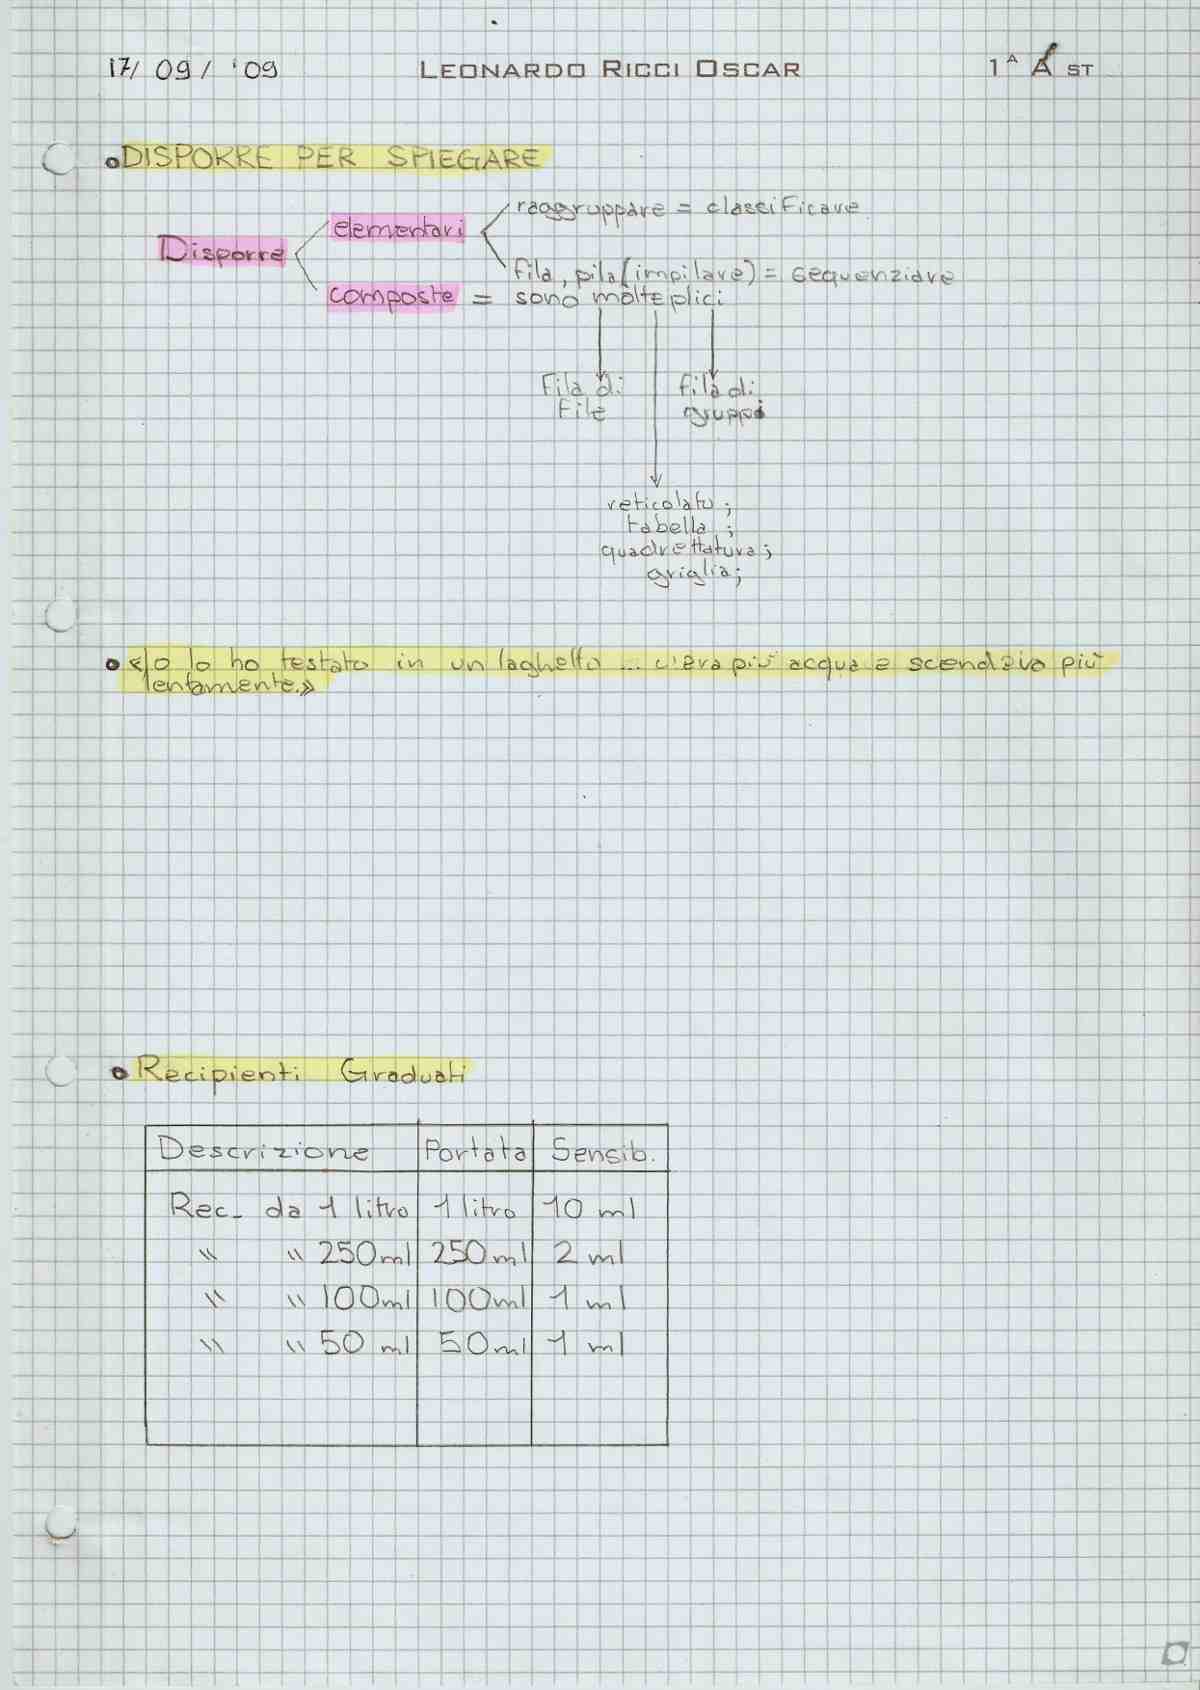 17/ 09/ '09 LEONARDO RICCI OSCAR 1ᴬ A ST
• DISPORRE PER SPIEGARE
raggruppare = classificare
elementari
Disporre
fila, pila (impilare) = sequenziare
composte = sono molteplici
Fila di fila di
File gruppi
reticolato;
tabella ;
quadrettatura;
griglia;
• «Io lo ho testato in un laghetto ... c'era più acqua e scendeva più
lentamente.»
• Recipienti Graduati
Descrizione Portata Sensib.
Rec. da 1 litro 1 litro 10 ml
" " 250 ml 250 ml 2 ml
" " 100 ml 100 ml 1 ml
" " 50 ml 50 ml 1 ml